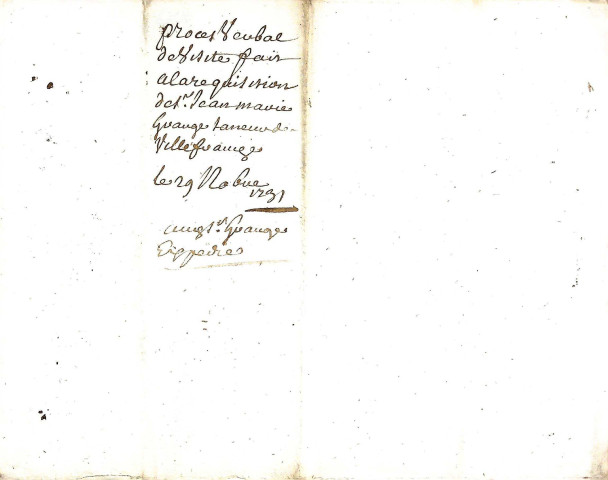 proces Verbal
de Visite fair
a la requisision
de sr. Jean marie
Grange taneur de
Villefranche
le 29 Nobre
1731
aud sr. Grange
Expedies